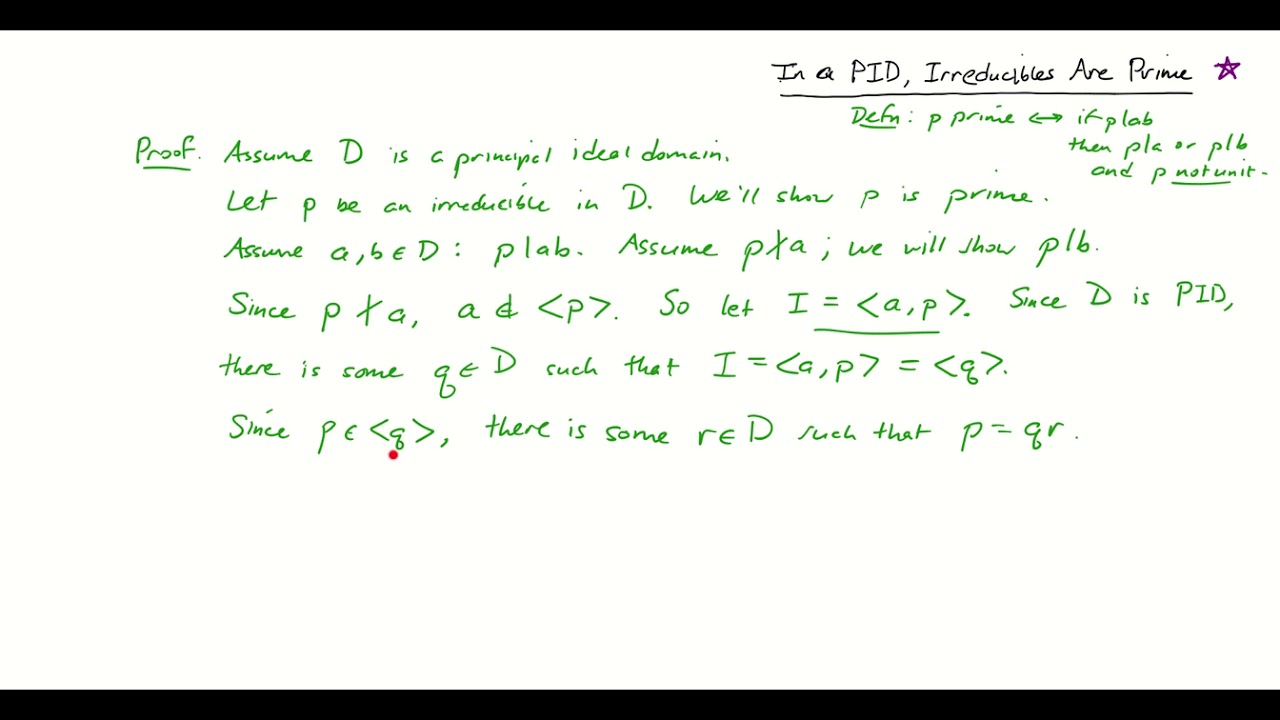 In a PID, Irreducibles Are Prime ☆
Defn: p prime ↔ if p|ab
then p|a or p|b
and p not unit.
Proof. Assume D is a principal ideal domain.
Let p be an irreducible in D. We'll show p is prime.
Assume a,b ∈ D : p|ab. Assume p∤a ; we will show p|b.
Since p ∤ a, a ∉ <p>. So let I = <a,p>. Since D is PID,
there is some q ∈ D such that I = <a,p> = <q>.
Since p ∈ <q>, there is some r ∈ D such that p = qr.